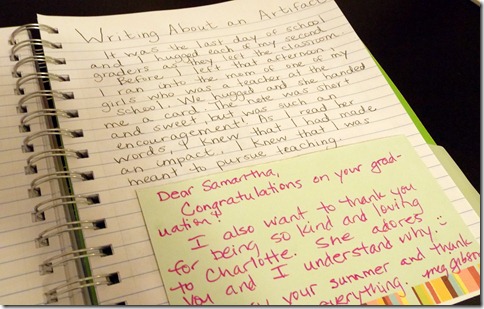 Writing About an Artifact
It was the last day of school
and I hugged each of my second
graders as they left the classroom.
Before I left that afternoon,
I ran into the mom of one of my
girls who was a teacher at the
school. We hugged and she handed
me a card. The note was short
and sweet but was such an
encouragement! As I read her
words, I knew that I had made
an impact. I knew that I was
meant to pursue teaching.
Dear Samartha,
Congratulations on your grad-
uation!
I also want to thank you
for being so kind and loving
to Charlotte. She adores
you and I understand why. :)
your summer and thank
everything. Meg Gibson